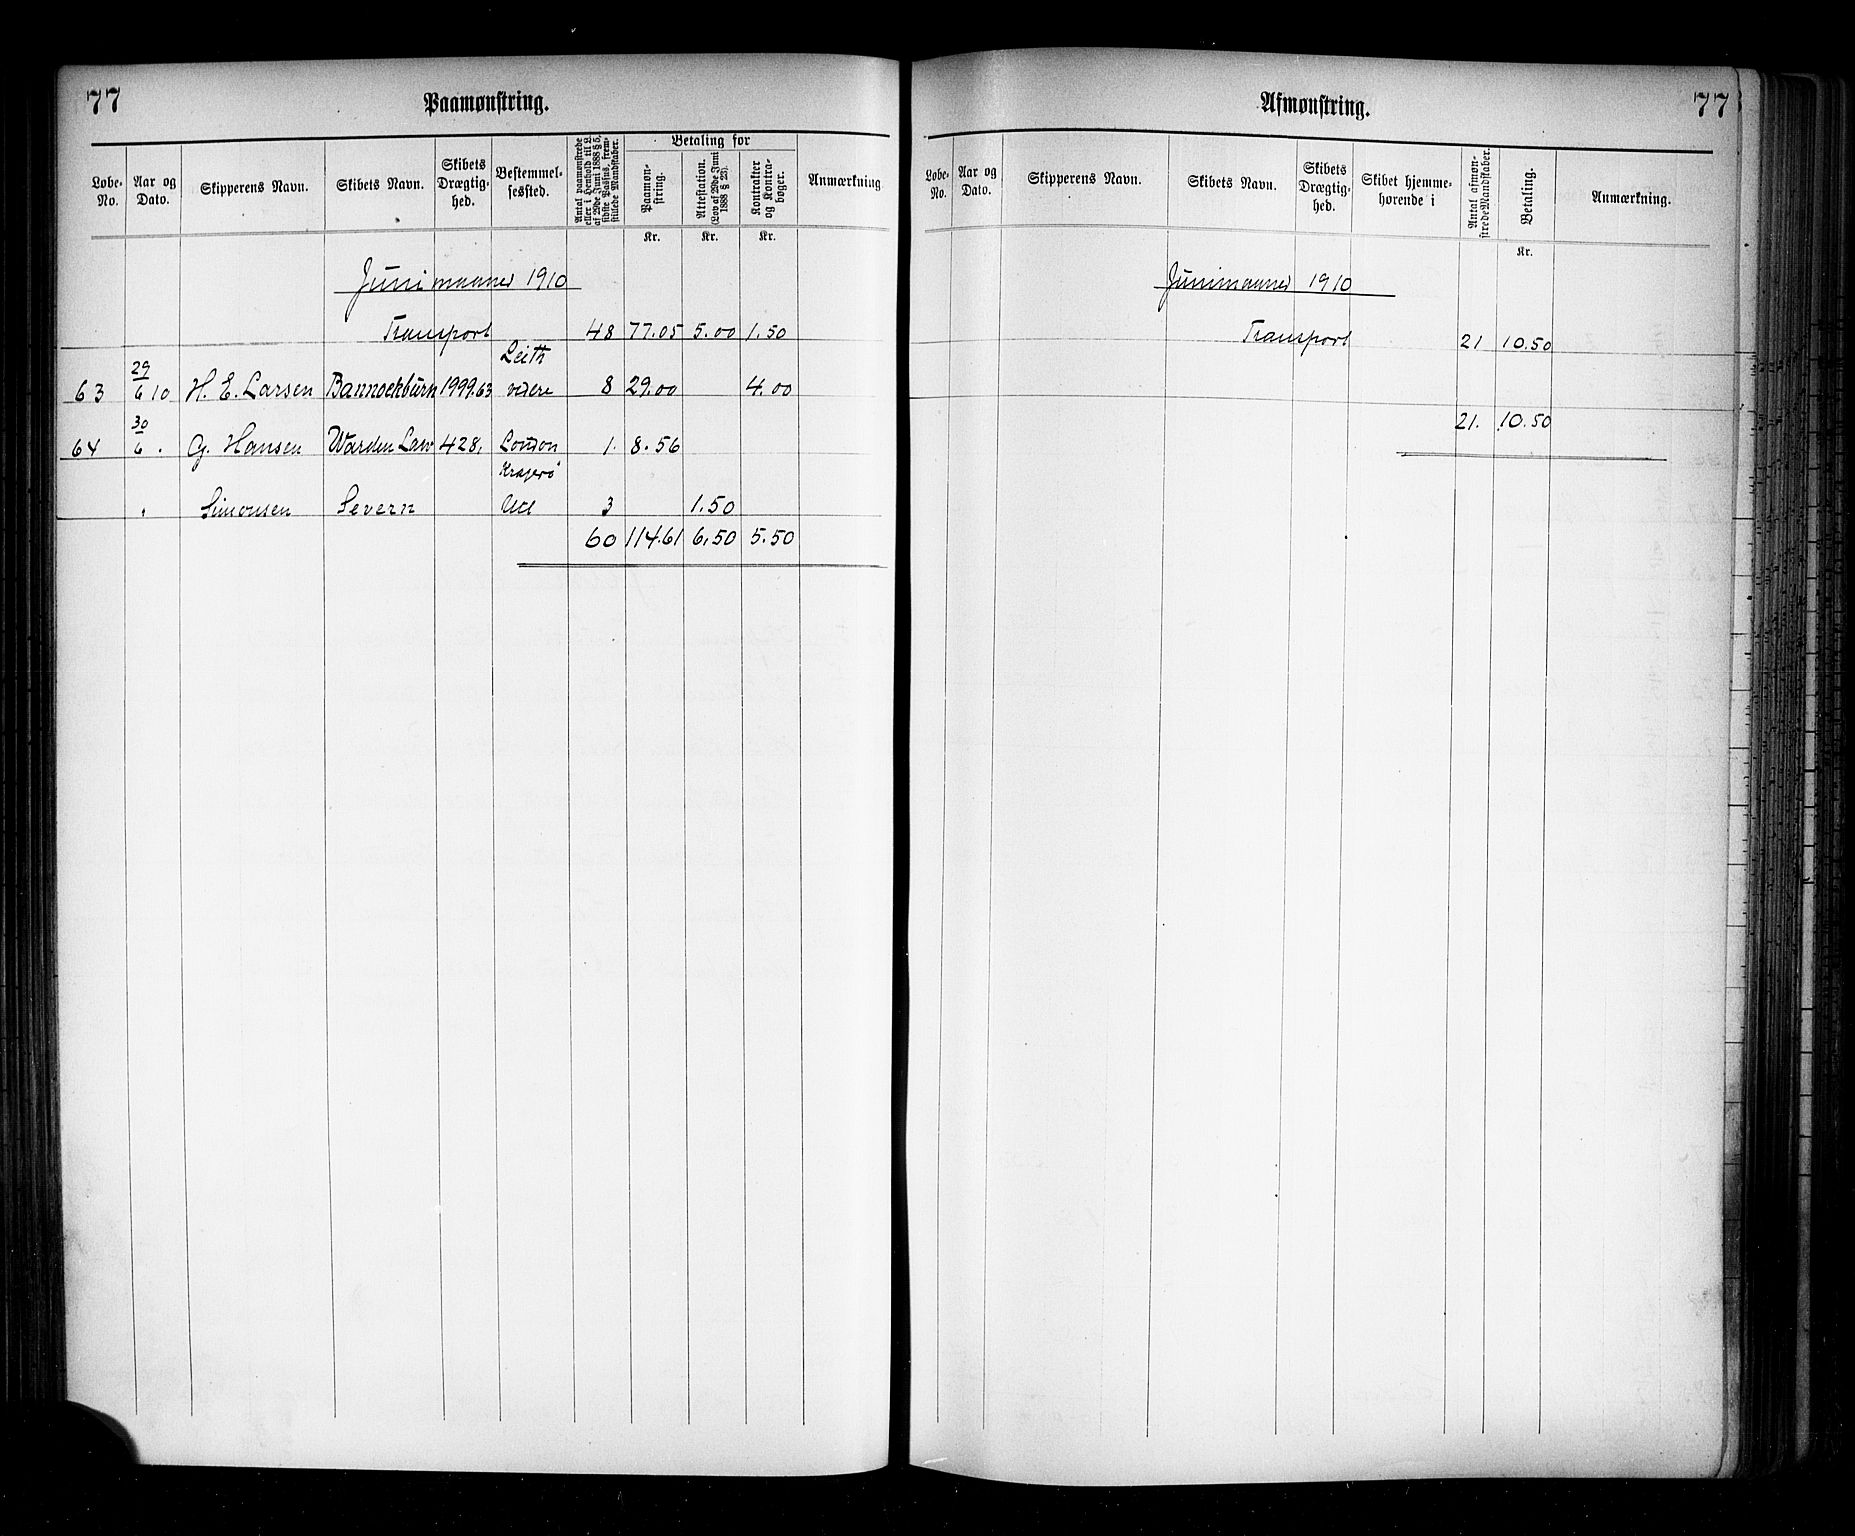 77
Paamønstring.
Løbe-No. Aar og Dato. Skipperens Navn. Skibets Navn. Skibets Drægtighed. Bestemmelsessted. Antal paamønstrede eller i Henhold til L. af 29de Juni 1888 § 5, sidste Passus, fremstillede Mandskaber. Betaling for Paamønstring. Attestation. (Lov af 29de Juni 1888 § 23). Kontrakter og Kontrabøger. Anmærkning.
Kr. Kr. Kr.
Junimaaned 1910
Transport 48 77.05 5.00 1.50
63 29/6 10 H. E. Larsen Bannockburn 1999.63 Leith videre 8 29.00 4.00
64 30/6 . G. Hansen Warden Law 428, London 1. 8.56
Simonsen Severn Kragerö Ud 3 1.50
60 114.61 6.50 5.50
Afmønstring.
77
Løbe-No. Aar og Dato. Skipperens Navn. Skibets Navn. Skibets Drægtighed. Skibet hjemmehørende i Antal afmønstrede Mandskaber. Betaling. Anmærkning.
Kr.
Junimaaned 1910
Transport 21 10.50
21. 10.50